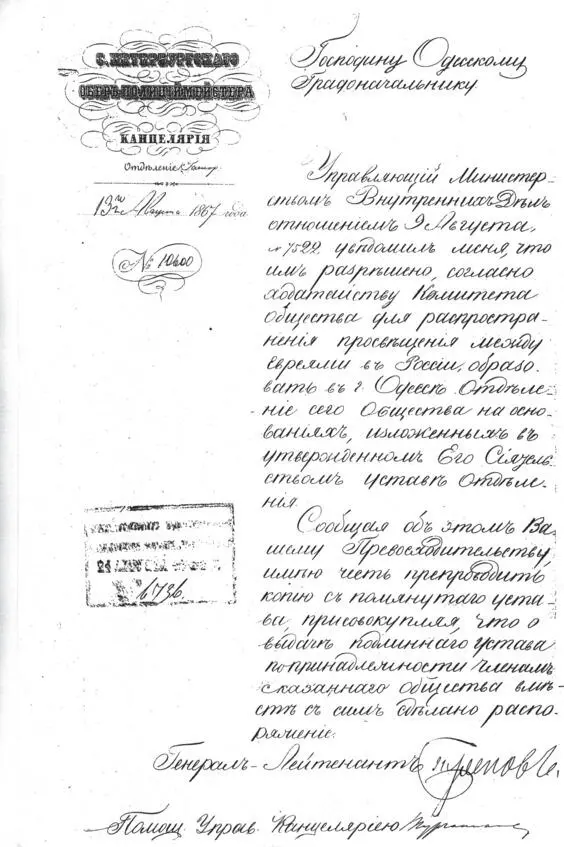 С. ПЕТЕРБУРГСКАГО
ОБЕРЪ-ПОЛИЦІЙМЕЙСТЕРА
КАНЦЕЛЯРІЯ
Отдѣленіе
13го Августа 1867 года
№ 10600
Господину Одесскому
Градоначальнику
Управляющій Министер-
ствомъ Внутреннихъ Дѣлъ
отношеніемъ 9 Августа,
№ 7522 увѣдомилъ меня, что
имъ разрѣшено, согласно
ходатайству Комитета
общества для распростра-
ненія просвѣщенія между
Евреями въ Россіи, образо-
вать въ г. Одессѣ Отдѣле-
ніе сего Общества на осно-
ваніяхъ, изложенныхъ въ
утвержденномъ Его Сіятель-
ствомъ уставѣ Отдѣле-
нія.
Сообщая объ этомъ Ва-
шему Превосходительству,
имѣю честь препроводить
копію съ помянутаго уста-
ва, присовокупляя, что о
выдачѣ подлиннаго устава
по принадлежности членамъ
сказаннаго общества вмѣ-
стѣ съ симъ сдѣлано распо-
ряженіе.
6736
Генералъ-Лейтенантъ Треповъ
Помощ. Управ. Канцеляріею